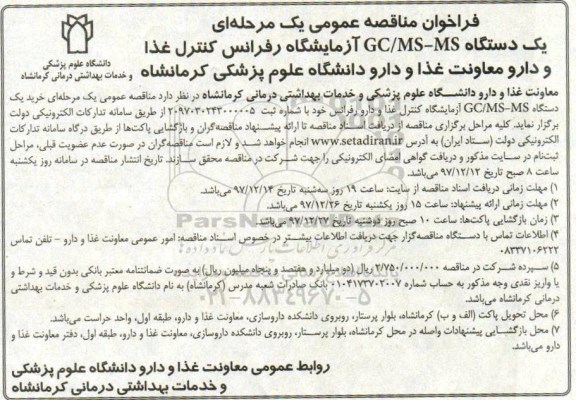 فراخوان مناقصه عمومی یک مرحله‌ای
یک دستگاه GC/MS-MS آزمایشگاه رفرانس کنترل غذا
و دارو معاونت غذا و دارو دانشگاه علوم پزشکی کرمانشاه
دانشگاه علوم پزشکی
و خدمات بهداشتی درمانی کرمانشاه
معاونت غذا و دارو دانشگاه علوم پزشکی و خدمات بهداشتی درمانی کرمانشاه در نظر دارد مناقصه عمومی یک مرحله‌ای خرید یک
دستگاه GC/MS-MS آزمایشگاه کنترل غذا و دارو رفرانس خود با شماره ثبت ۲۰۹۷۰۳۰۲۴۳۰۰۰۰۰۵ از طریق سامانه تدارکات الکترونیکی دولت
برگزار نماید. کلیه مراحل برگزاری مناقصه از دریافت اسناد مناقصه تا ارائه پیشنهاد مناقصه‌گران و بازگشایی پاکت‌ها از طریق درگاه سامانه تدارکات
الکترونیکی دولت (ستاد ایران) به آدرس www.setadiran.ir انجام خواهد شد و لازم است مناقصه‌گران در صورت عدم عضویت قبلی، مراحل
ثبت‌نام در سایت مذکور و دریافت گواهی امضای الکترونیکی را جهت شرکت در مناقصه محقق سازند. تاریخ انتشار مناقصه در سامانه روز یکشنبه
ساعت ۸ صبح تاریخ ۹۷/۱۲/۱۲ می‌باشد.
۱) مهلت زمانی دریافت اسناد مناقصه از سایت: ساعت ۱۹ روز سه‌شنبه تاریخ ۹۷/۱۲/۱۴ می‌باشد.
۲) مهلت زمانی ارائه پیشنهاد: ساعت ۱۵ روز یکشنبه تاریخ ۹۷/۱۲/۲۶ می‌باشد.
۳) زمان بازگشایی پاکت‌ها: ساعت ۱۰ صبح روز دوشنبه تاریخ ۹۷/۱۲/۲۷ می‌باشد.
۴) اطلاعات تماس با دستگاه مناقصه‌گزار جهت دریافت اطلاعات بیشتر در خصوص اسناد مناقصه: امور عمومی معاونت غذا و دارو - تلفن تماس
۰۸۳۳۷۱۰۶۲۲۲
۵) سپرده شرکت در مناقصه ۲/۷۵۰/۰۰۰/۰۰۰ ریال (دو میلیارد و هفتصد و پنجاه میلیون ریال) به صورت ضمانتنامه معتبر بانکی بدون قید و شرط و
یا واریز نقدی وجه مذکور به حساب شماره ۰۱۰۴۱۷۳۷۰۲۰۰۷ بانک صادرات شعبه مدرس (کرمانشاه) به نام دانشگاه علوم پزشکی و خدمات بهداشتی
درمانی کرمانشاه می‌باشد.
۶) محل تحویل پاکت (الف و ب) کرمانشاه، بلوار پرستار، روبروی دانشکده داروسازی، معاونت غذا و دارو، طبقه اول، واحد حراست می‌باشد.
۷) محل بازگشایی پیشنهادات واصله در محل کرمانشاه، بلوار پرستار، روبروی دانشکده داروسازی، معاونت غذا و دارو، طبقه اول، دفتر معاونت غذا و
دارو می‌باشد.
روابط عمومی معاونت غذا و دارو دانشگاه علوم پزشکی
و خدمات بهداشتی درمانی کرمانشاه
ParsNamadData
۰۲۱-۸۸۳۴۹۶۷۰-۵